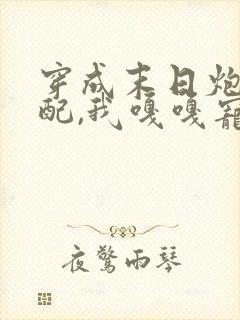 穿成末日炮
配,我嘎嘎寵
夜驚雨琴